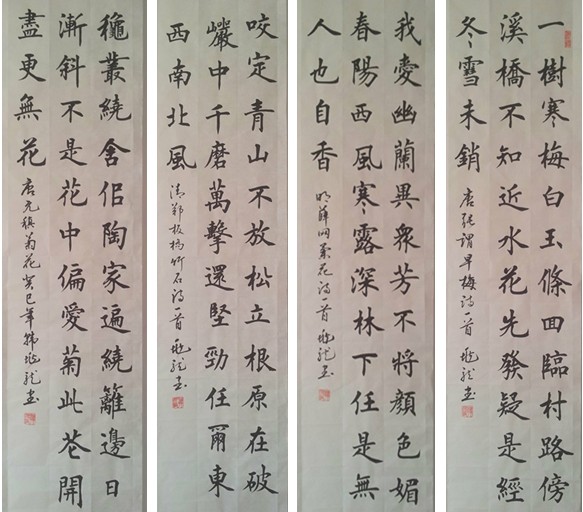 一樹寒梅白玉條回臨村路傍
溪橋不知近水花先發疑是經
冬雪未銷
唐張謂早梅詩一首 龍書
我愛幽蘭異衆芳不將顏色媚
春陽西風寒露深林下任是無
人也自香
明薛网蘭花詩一首 龍書
咬定青山不放松立根原在破
巖中千磨萬擊還堅勁任爾東
西南北風
清鄭板橋竹石詩一首 龍書
穐叢繞舍佀陶家遍繞籬邊日
漸斜不是花中偏愛菊此花開
盡更無花
唐元稹菊花 癸巳年韓 龍書